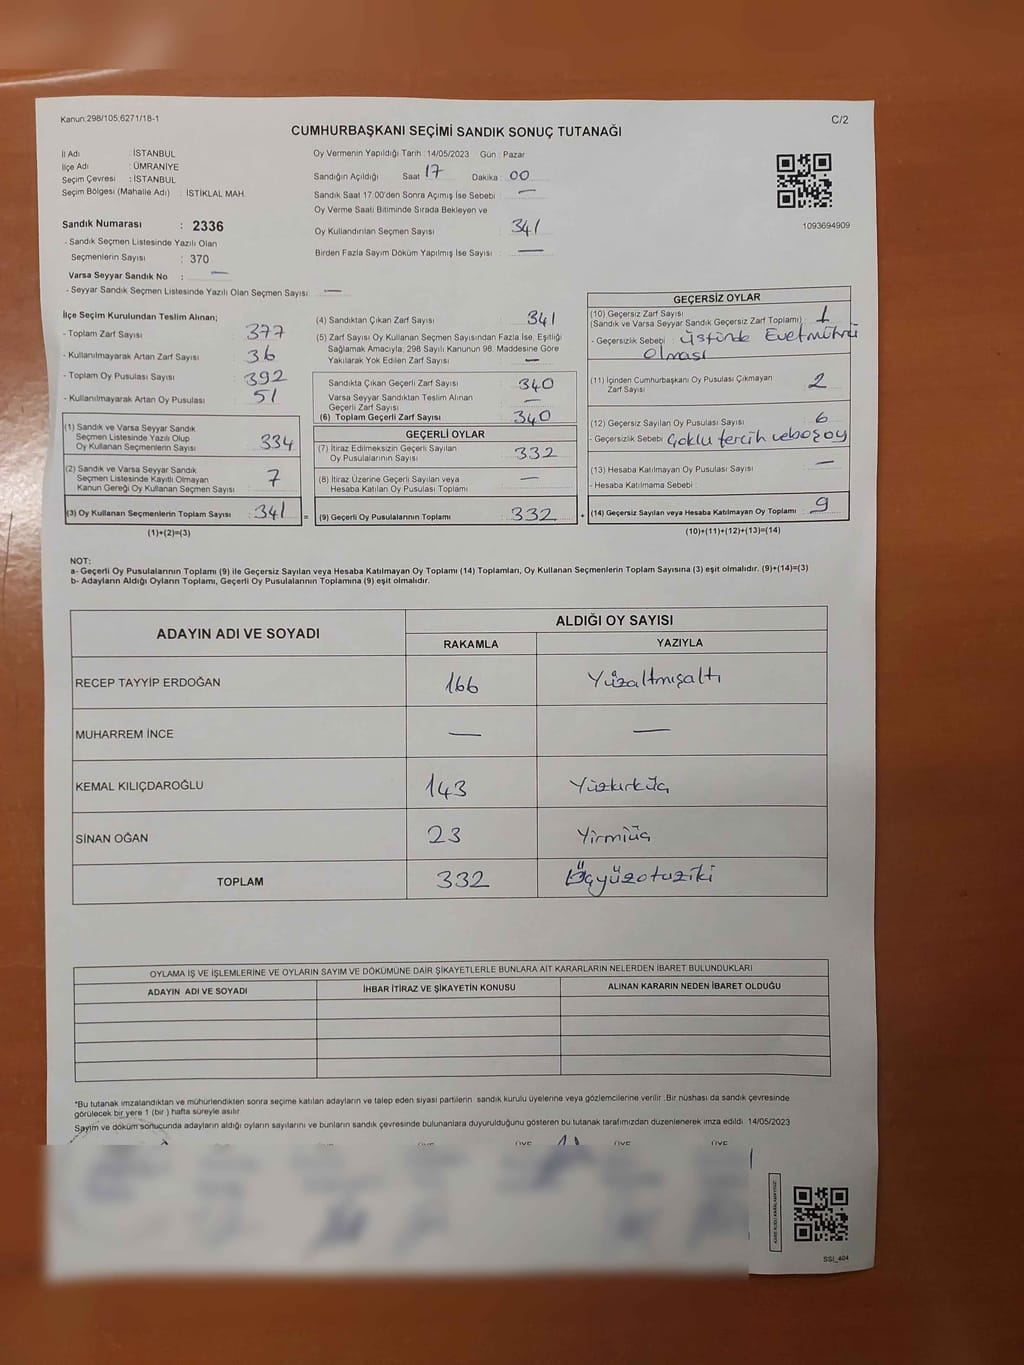 Kanun;298/105;6271/18-1
C/2
CUMHURBAŞKANI SEÇİMİ SANDIK SONUÇ TUTANAĞI
İl Adı : İSTANBUL
İlçe Adı : ÜMRANİYE
Seçim Çevresi : İSTANBUL
Seçim Bölgesi (Mahalle Adı) : İSTİKLAL MAH.
Sandık Numarası : 2336
- Sandık Seçmen Listesinde Yazılı Olan
Seçmenlerin Sayısı : 370
Varsa Seyyar Sandık No : —
- Seyyar Sandık Seçmen Listesinde Yazılı Olan Seçmen Sayısı: —
Oy Vermenin Yapıldığı Tarih : 14/05/2023 Gün : Pazar
Sandığın Açıldığı Saat : 17 Dakika : 00
Sandık Saat 17:00'den Sonra Açımış İse Sebebi : —
Oy Verme Saati Bitiminde Sırada Bekleyen ve
Oy Kullandırılan Seçmen Sayısı : 341
Birden Fazla Sayım Döküm Yapılmış İse Sayısı : —
1093694909
İlçe Seçim Kurulundan Teslim Alınan;
- Toplam Zarf Sayısı : 377
- Kullanılmayarak Artan Zarf Sayısı : 36
- Toplam Oy Pusulası Sayısı : 392
- Kullanılmayarak Artan Oy Pusulası : 51
(1) Sandık ve Varsa Seyyar Sandık
Seçmen Listesinde Yazılı Olup
Oy Kullanan Seçmenlerin Sayısı : 334
(2) Sandık ve Varsa Seyyar Sandık
Seçmen Listesinde Kayıtlı Olmayan
Kanun Gereği Oy Kullanan Seçmen Sayısı : 7
(3) Oy Kullanan Seçmenlerin Toplam Sayısı : 341
(1)+(2)=(3)
(4) Sandıktan Çıkan Zarf Sayısı : 341
(5) Zarf Sayısı Oy Kullanan Seçmen Sayısından Fazla İse, Eşitliği
Sağlamak Amacıyla; 298 Sayılı Kanunun 98. Maddesine Göre
Yakılarak Yok Edilen Zarf Sayısı : —
Sandıkta Çıkan Geçerli Zarf Sayısı : 340
Varsa Seyyar Sandıktan Teslim Alınan
Geçerli Zarf Sayısı : —
(6) Toplam Geçerli Zarf Sayısı : 340
GEÇERLİ OYLAR
(7) İtiraz Edilmeksizin Geçerli Sayılan
Oy Pusulalarının Sayısı : 332
(8) İtiraz Üzerine Geçerli Sayılan veya
Hesaba Katılan Oy Pusulası Toplamı : —
= (9) Geçerli Oy Pusulalarının Toplamı : 332 +
GEÇERSİZ OYLAR
(10) Geçersiz Zarf Sayısı
(Sandık ve Varsa Seyyar Sandık Geçersiz Zarf Toplamı) : 1
- Geçersizlik Sebebi : üstünde Evet mührü
olması
(11) İçinden Cumhurbaşkanı Oy Pusulası Çıkmayan
Zarf Sayısı : 2
(12) Geçersiz Sayılan Oy Pusulası Sayısı : 6
- Geçersizlik Sebebi : Çoklu tercih ve boş oy
(13) Hesaba Katılmayan Oy Pusulası Sayısı : —
- Hesaba Katılmama Sebebi :
(14) Geçersiz Sayılan veya Hesaba Katılmayan Oy Toplamı : 9
(10)+(11)+(12)+(13)=(14)
NOT:
a- Geçerli Oy Pusulalarının Toplamı (9) ile Geçersiz Sayılan veya Hesaba Katılmayan Oy Toplamı (14) Toplamları, Oy Kullanan Seçmenlerin Toplam Sayısına (3) eşit olmalıdır. (9)+(14)=(3)
b- Adayların Aldığı Oyların Toplamı, Geçerli Oy Pusulalarının Toplamına (9) eşit olmalıdır.
ADAYIN ADI VE SOYADI
ALDIĞI OY SAYISI
RAKAMLA YAZIYLA
RECEP TAYYİP ERDOĞAN 166 Yüzaltmışaltı
MUHARREM İNCE — —
KEMAL KILIÇDAROĞLU 143 Yüzkırküç
SİNAN OĞAN 23 Yirmiüç
TOPLAM 332 Üçyüzotuziki
OYLAMA İŞ VE İŞLEMLERİNE VE OYLARIN SAYIM VE DÖKÜMÜNE DAİR ŞİKAYETLERLE BUNLARA AİT KARARLARIN NELERDEN İBARET BULUNDUKLARI
ADAYIN ADI VE SOYADI İHBAR İTİRAZ VE ŞİKAYETİN KONUSU ALINAN KARARIN NEDEN İBARET OLDUĞU
*Bu tutanak imzalandıktan ve mühürlendikten sonra seçime katılan adayların ve talep eden siyasi partilerin sandık kurulu üyelerine veya gözlemcilerine verilir. Bir nüshası da sandık çevresinde
görülecek bir yere 1 (bir) hafta süreyle asılır.
Sayım ve döküm sonucunda adayların aldığı oyların sayılarını ve bunların sandık çevresinde bulunanlara duyurulduğunu gösteren bu tutanak tarafımızdan düzenlenerek imza edildi. 14/05/2023
SSI_404